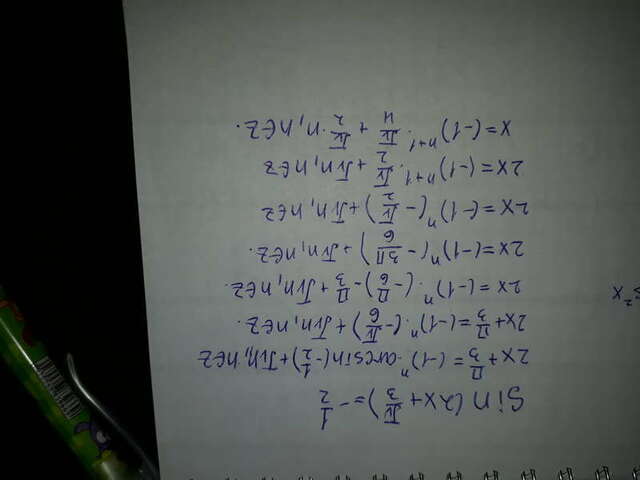 sin(2x+π/3)=-1/2
2x+π/3=(-1)^n·arcsin(-1/2)+πn, n∈Z
2x+π/3=(-1)^n·(-π/6)+πn, n∈Z.
s²x
2x=(-1)^n·(-π/6)-π/3+πn, n∈Z.
2x=(-1)^n(-3π/6)+πn, n∈Z.
2x=(-1)^n(-π/2)+πn, n∈Z
2x=(-1)^(n+1)·π/2+πn, n∈Z
x=(-1)^(n+1)·π/4+π/2·n, n∈Z.